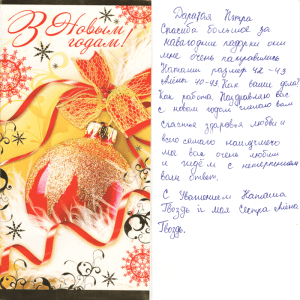 З Новым
годом!
Дорогая Петра
Спасибо большое за
новогодние подарки они
мне очень понравились
Наташи размер 42-43
Алёны 40-43 Как ваши дела?
Как работа. Поздравляю вас
с новым годом желаю вам
счастье здоровья любви и
всего самого наилучшего
мы вас очень любим
и ждём с нетерпением
вам ответ.
С Уважением Наташа
Гвоздь и моя сестра Алёна
Гвоздь.